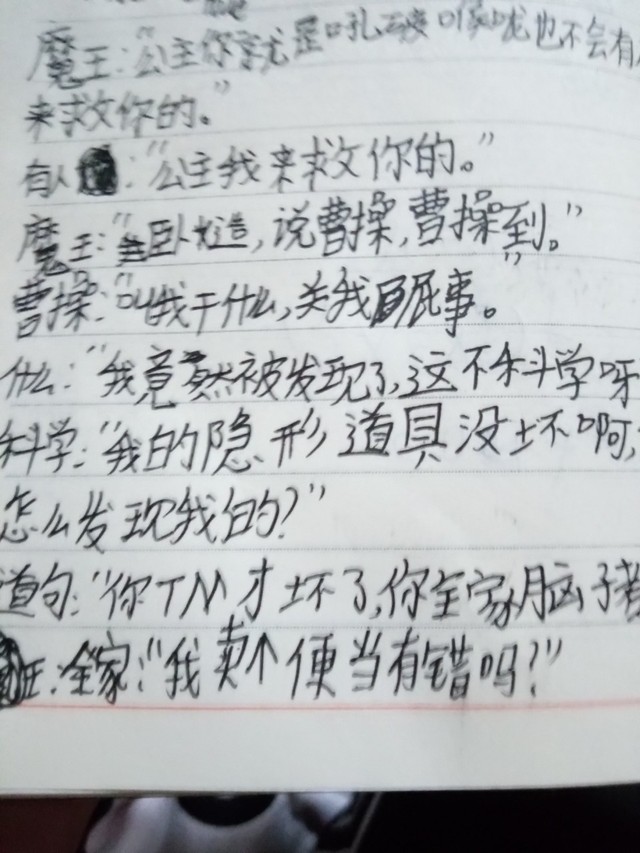 魔王:“公主你就是叫破喉咙也不会有人
来救你的。”
有人:“公主我来救你的。”
魔王:“卧槽,说曹操,曹操到。”
曹操:“叫我干什么,关我屁事。”
什么:“我竟然被发现了,这不科学呀
科学:“我的隐形道具没坏啊,
怎么发现我的?”
道句:“你TM才坏了,你全家脑子
全家:“我卖个便当有错吗?”